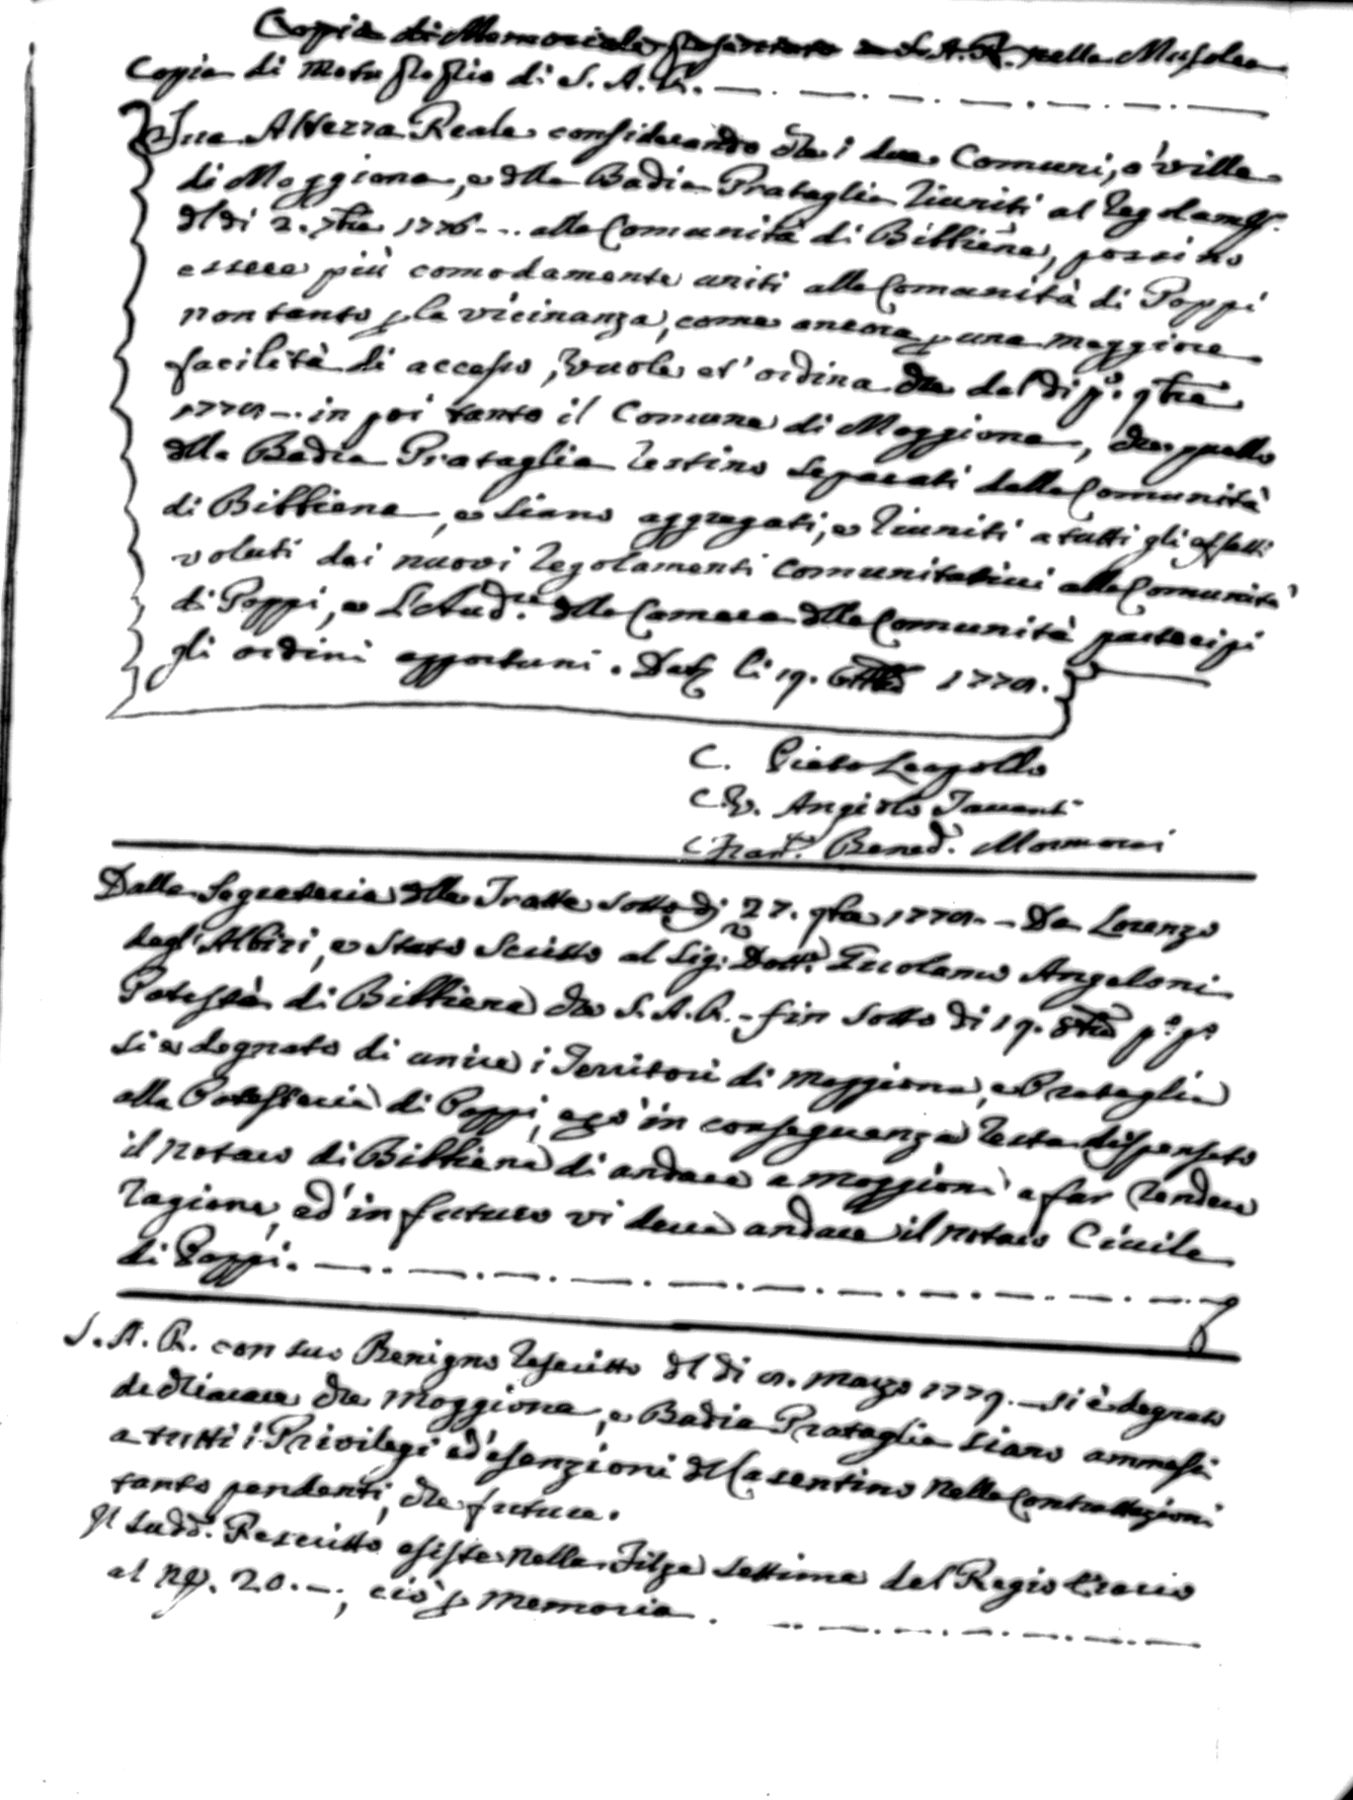 Copia di Memoriale presentato a S. A. R. nella
Copia di Motuproprio di S. A. R.
Sua Altezza Reale considerando che i due Comuni, o' ville
di Moggiona, e della Badia Prataglia riuniti al Regolam.
del di 2. 7bre 1776 - - . alla Comunità di Bibbiena, possino
essere più comodamente uniti alla Comunità di Poppi
non tanto p la vicinanza, come ancora p una maggiore
facilità di accesso, vuole et' ordina che dal di p.o 9bre
177 in poi tanto il Comune di Moggiona, che quello
della Badia Prataglia restino separati dalla Comunità
di Bibbiena, e siano aggregati, e riuniti a tutti gli effetti
voluti dai nuovi regolamenti Comunitativi alla Comunità
di Poppi, e L'Aud.re della Camera delle Comunità partecipi
gli ordini opportuni. Dat li 19. 177
C. Pietro Leopoldo
C. V. Angiolo Tavanti
C. Fran. Bened. Mormorai
Dalla Segreteria delle Tratte sotto dj 27. 9bre 177 - - Da Lorenzo
degl'Albizi, e stato scritto al Sig.r Dott. Girolamo Angeloni
Potestà di Bibbiena che S. A. R. - fin sotto di 19. 8bre p.o p.o
si e degnato di unire i Territori di Moggiona, e Prataglia
alla Potesteria di Poppi, e in conseguenza resta dispensato
il notaro di Bibbiena di andare a Moggiona a far rendere
ragione, ed' in futuro vi deva andare il notaro Civile
di Poppi.
S. A. R. con suo Benigno rescritto del di marzo 1779. - si è degnato
dichiarare che Moggiona, e Badia Prataglia siano ammessi
a tutti i Privilegi ed' esenzioni del Casentino nelle Contrattazioni
tanto pendenti, che future.
Il sudd. Rescritto esiste nella Filza settima del Regio
al n. 20. -; ciò p memoria.